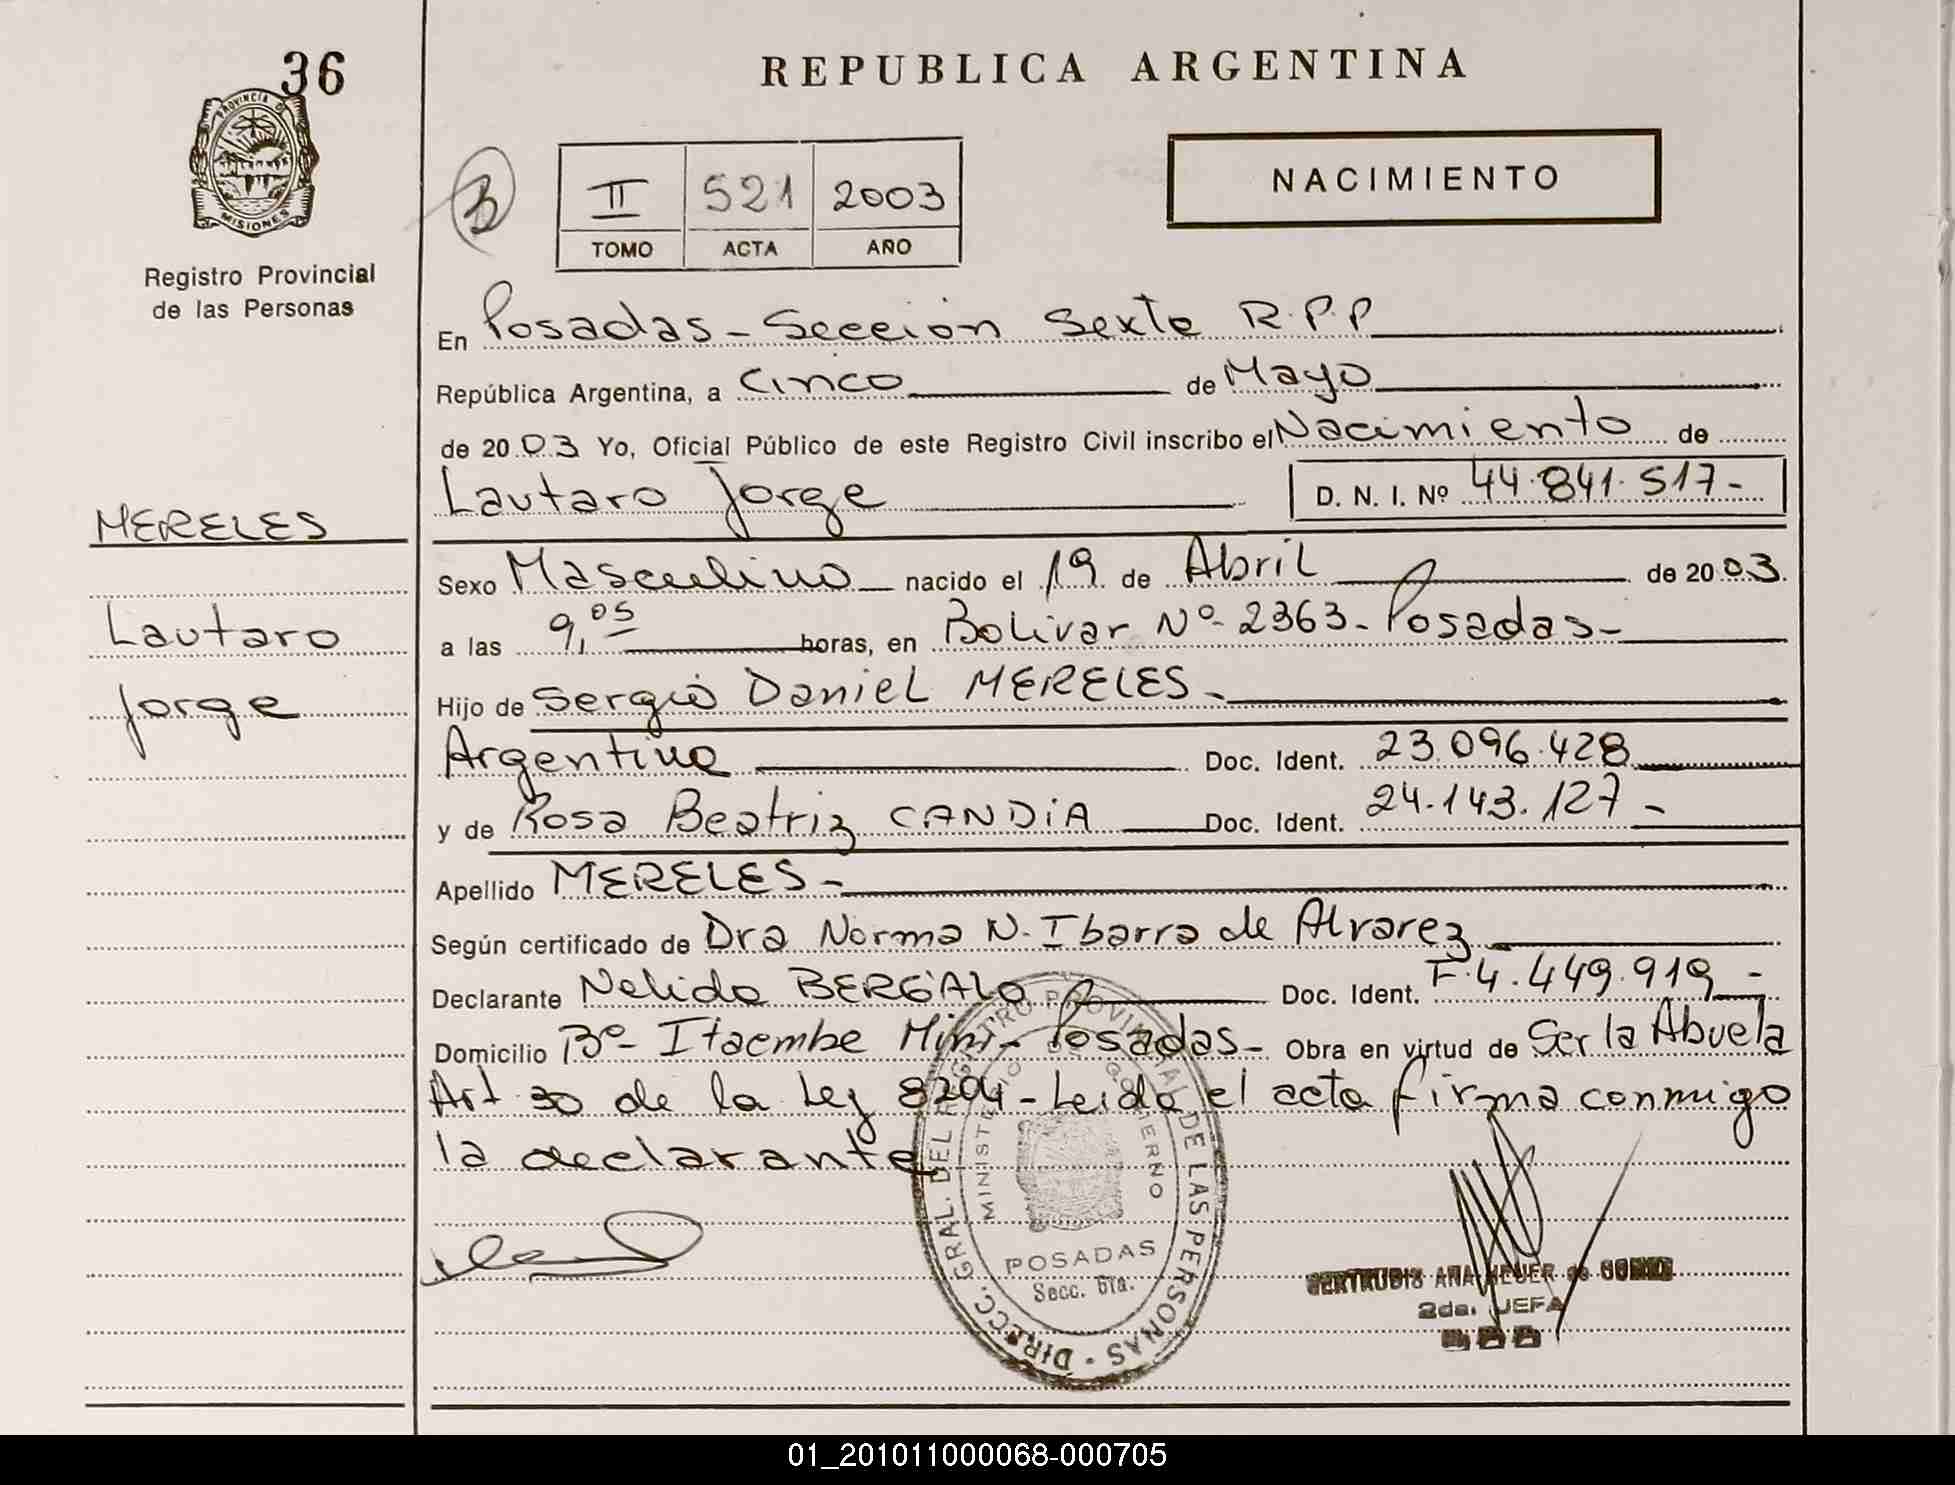 36
PROVINCIA DE
MISIONES
Registro Provincial
de las Personas
MERELES
Lautaro
Jorge
REPUBLICA ARGENTINA
B
II 521 2003
TOMO ACTA AÑO
NACIMIENTO
En Posadas - Sección Sexta R.P.P
República Argentina, a Cinco de Mayo
de 2003 Yo, Oficial Público de este Registro Civil inscribo el Nacimiento de
Lautaro Jorge D. N. I. Nº 44.841.517-
Sexo Masculino nacido el 19 de Abril de 2003.
a las 9,05 horas, en Bolivar Nº 2363 - Posadas -
Hijo de Sergio Daniel MERELES -
Argentino Doc. Ident. 23.096.428
y de Rosa Beatriz CANDIA Doc. Ident. 24.143.127 -
Apellido MERELES -
Según certificado de Dra Norma N. Ibarra de Alvarez
Declarante Nelida BERGALO Doc. Ident. F.4.449.919 -
Domicilio Bº - Itaembe Mini - Posadas - Obra en virtud de Ser la Abuela
Art 30 de la Ley 8204 - Leida el acta firma conmigo
la declarante
DIRECC. GRAL. DEL REGISTRO PROVINCIAL DE LAS PERSONAS
MINISTERIO DE GOBIERNO
POSADAS
Secc. 6ta.
GERTRUDIS ANA HEUER de
2da. JEFA
01_201011000068-000705